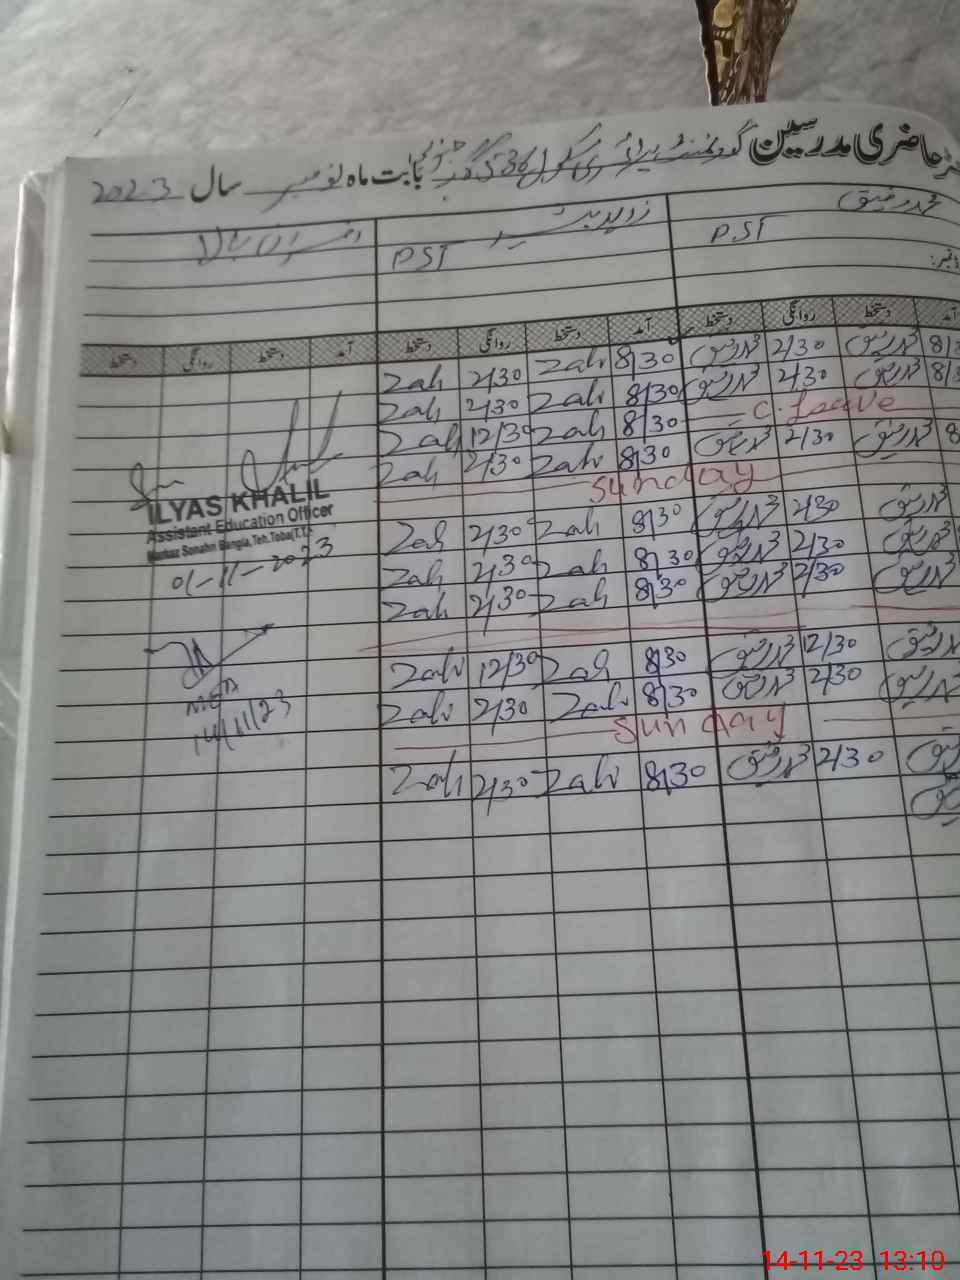 حاضری مدرسین گورنمنٹ پرائمری سکول 365 گ ب جنوبی بابت ماہ نومبر سال 2023
محمد رفیق
زاہد بشیر
افسران بالا
PST
PST
آمد دستخط روانگی دستخط آمد دستخط روانگی دستخط آمد دستخط روانگی دستخط
8/30 محمد رفیق 2/30 محمد رفیق 8/30 Zah 2/30 Zah
8/30 محمد رفیق 2/30 محمد رفیق 8/30 Zah 2/30 Zah
C. Leave 8/30 Zah 12/30 Zah
8 محمد رفیق 2/30 محمد رفیق 8/30 Zah 2/30 Zah
Sunday
محمد رفیق 2/30 محمد رفیق 8/30 Zah 2/30 Zah
محمد رفیق 2/30 محمد رفیق 8/30 Zah 2/30 Zah
محمد رفیق 2/30 محمد رفیق 8/30 Zah 2/30 Zah
محمد رفیق 12/30 محمد رفیق 8/30 Zah 12/30 Zah
محمد رفیق 2/30 محمد رفیق 8/30 Zah 2/30 Zah
Sunday
محمد رفیق 2/30 محمد رفیق 8/30 Zah 2/30 Zah
ILYAS KHALIL
Assistant Education Officer
Markaz Sonahri Bangla, Teh. Toba (T.T.)
01-11-2023
MEA
14/11/23
14-11-23 13:10